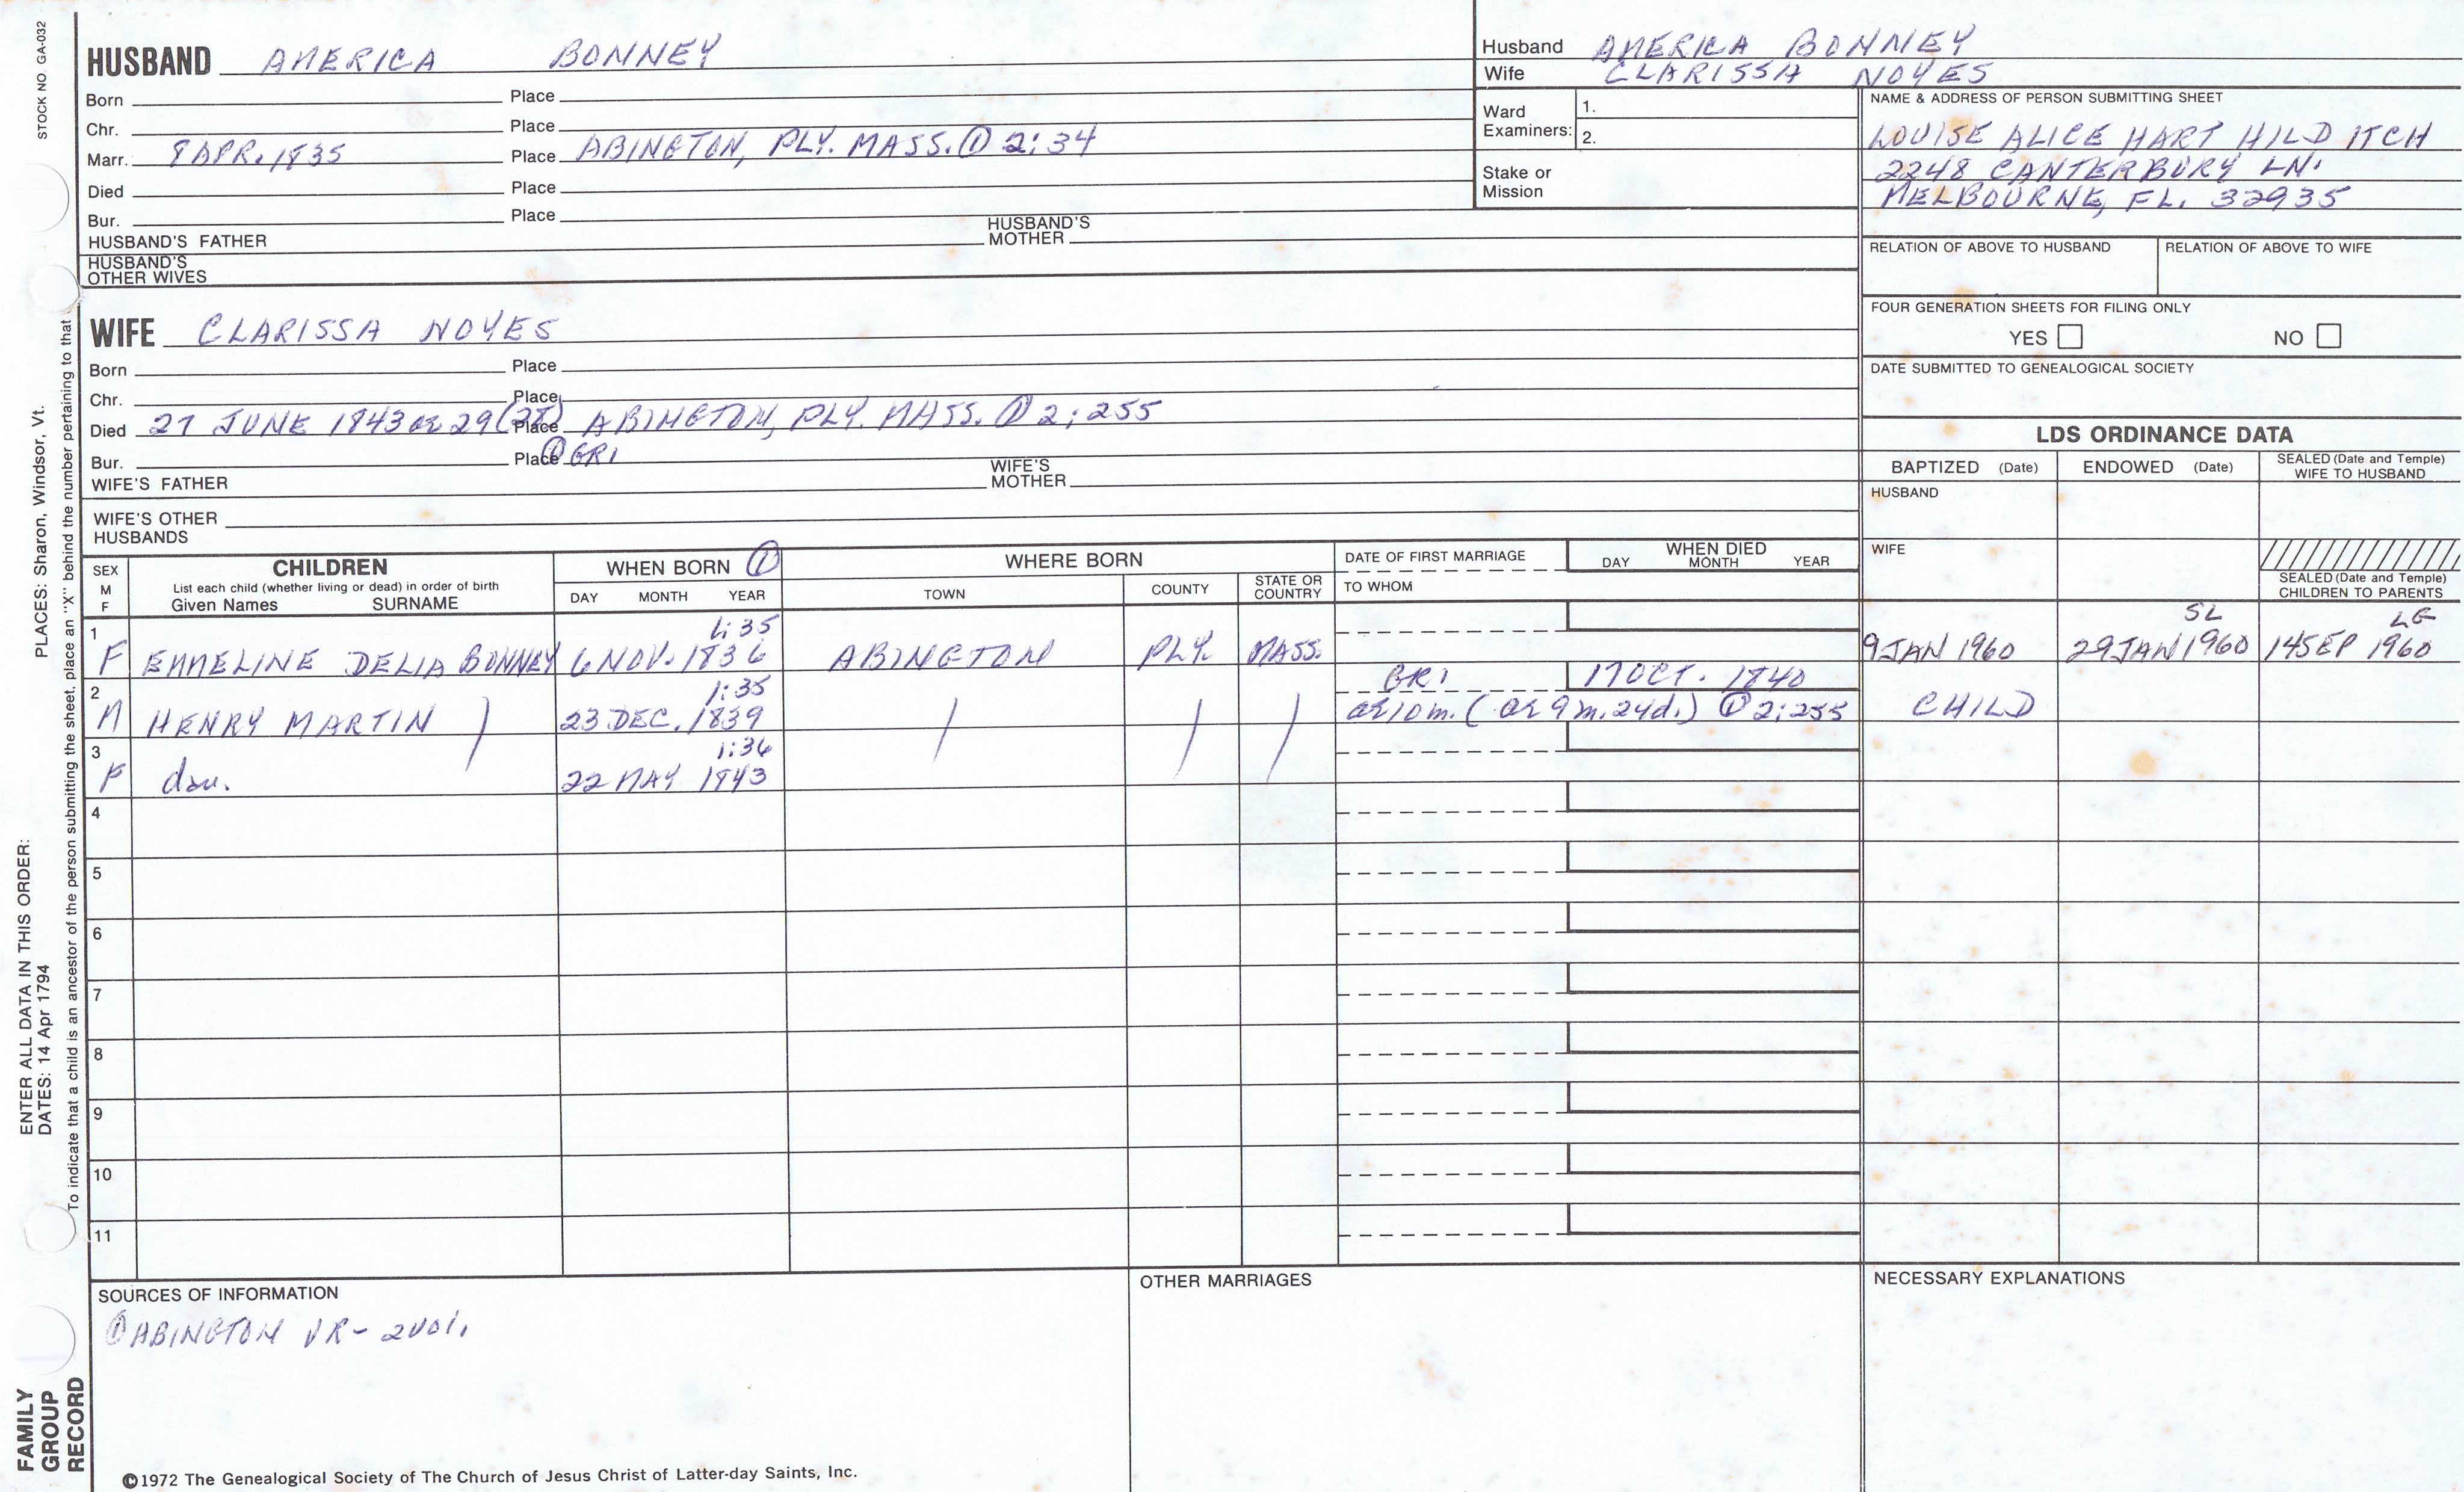 STOCK NO GA-032
HUSBAND AMERICA BONNEY
Born Place
Chr. Place
Marr. 8 APR. 1835 Place ABINGTON, PLY. MASS. ① 2:34
Died Place
Bur. Place
HUSBAND'S FATHER HUSBAND'S MOTHER
HUSBAND'S OTHER WIVES
Husband AMERICA BONNEY
Wife CLARISSA NOYES
Ward Examiners: 1.
2.
Stake or Mission
NAME & ADDRESS OF PERSON SUBMITTING SHEET
LOUISE ALICE HART HILD ITCH
2248 CANTERBURY LN.
MELBOURNE, FL. 32935
RELATION OF ABOVE TO HUSBAND RELATION OF ABOVE TO WIFE
FOUR GENERATION SHEETS FOR FILING ONLY
YES NO
DATE SUBMITTED TO GENEALOGICAL SOCIETY
WIFE CLARISSA NOYES
Born Place
Chr. Place
Died 27 JUNE 1843 or 29 Place ABINGTON, PLY. MASS. ① 2:255
Bur. Place ① GR1
WIFE'S FATHER WIFE'S MOTHER
WIFE'S OTHER HUSBANDS
LDS ORDINANCE DATA
BAPTIZED (Date) ENDOWED (Date) SEALED (Date and Temple) WIFE TO HUSBAND
HUSBAND
WIFE
SEALED (Date and Temple) CHILDREN TO PARENTS
SEX M F CHILDREN WHEN BORN ① WHERE BORN DATE OF FIRST MARRIAGE WHEN DIED
List each child (whether living or dead) in order of birth
Given Names SURNAME DAY MONTH YEAR TOWN COUNTY STATE OR COUNTRY TO WHOM DAY MONTH YEAR
1 1:35 SL LG
F EMMELINE DELIA BONNEY 6 NOV. 1836 ABINGTON PLY. MASS. 9 JAN 1960 29 JAN 1960 14 SEP 1960
2 1:35 GR1 17 OCT. 1840
M HENRY MARTIN 23 DEC. 1839 ae 10 m. (ae 9 m. 24 d.) ① 2:255 CHILD
3 1:36
F dau. 22 MAY 1843
4
5
6
7
8
9
10
11
SOURCES OF INFORMATION OTHER MARRIAGES NECESSARY EXPLANATIONS
① ABINGTON VR- 2 vol.
©1972 The Genealogical Society of The Church of Jesus Christ of Latter-day Saints, Inc.
To indicate that a child is an ancestor of the person submitting the sheet, place an "X" behind the number pertaining to that
ENTER ALL DATA IN THIS ORDER:
DATES: 14 Apr 1794 PLACES: Sharon, Windsor, Vt.
FAMILY
GROUP
RECORD